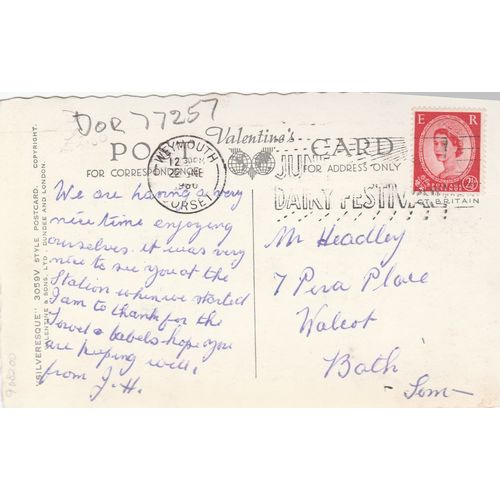 DOR 77257
POST CARD
Valentine's
FOR CORRESPONDENCE
FOR ADDRESS ONLY
WEYMOUTH
DORSET
JUNE
DAIRY FESTIVAL
E R
POSTAGE
2½D
BRITAIN
"SILVERESQUE" 3059V STYLE POSTCARD. COPYRIGHT.
VALENTINE & SONS, LTD., DUNDEE AND LONDON.
We are having a very
nice time enjoying
ourselves. it was very
nice to see you at the
Station when we started
I am to thank for the
Towel & labels hope you
are keeping well.
from J.H.
Mr Headley
7 Pera Place
Walcot
Bath
Som